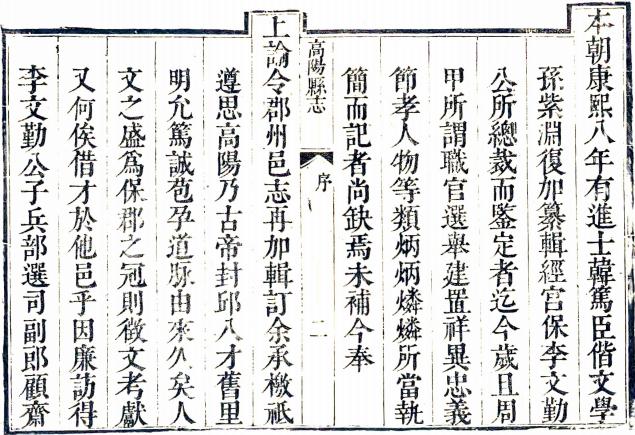 本朝康熙八年有進士韓篤臣偕文學
孫紫淵復加纂輯經宮保李文勤
公所總裁而鑒定者迄今歲且周
甲所謂職官選舉建置祥異忠義
節孝人物等類炳炳燐燐所當執
簡而記者尚缺焉未補今奉
高陽縣志
序
二
上諭令郡州邑志再加輯訂余承檄祇
遵思高陽乃古帝封邱八才舊里
明允篤誠苞孕道脉由來久矣人
文之盛為保郡之冠則徵文考獻
又何俟借才於他邑乎因廉訪得
李文勤公子兵部選司副郎顧齋